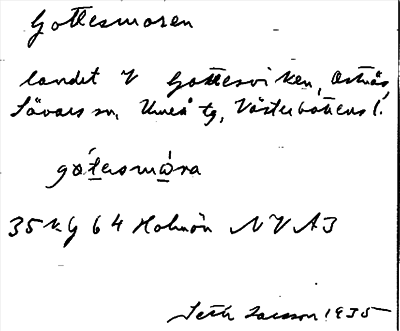 Gottesmoren
landet V Gottesviken, Ostnäs,
Sävars sn, Umeå tg, Västerbottens l.
35 k g 64 Holmön NV A3
Seth Larsson 1935